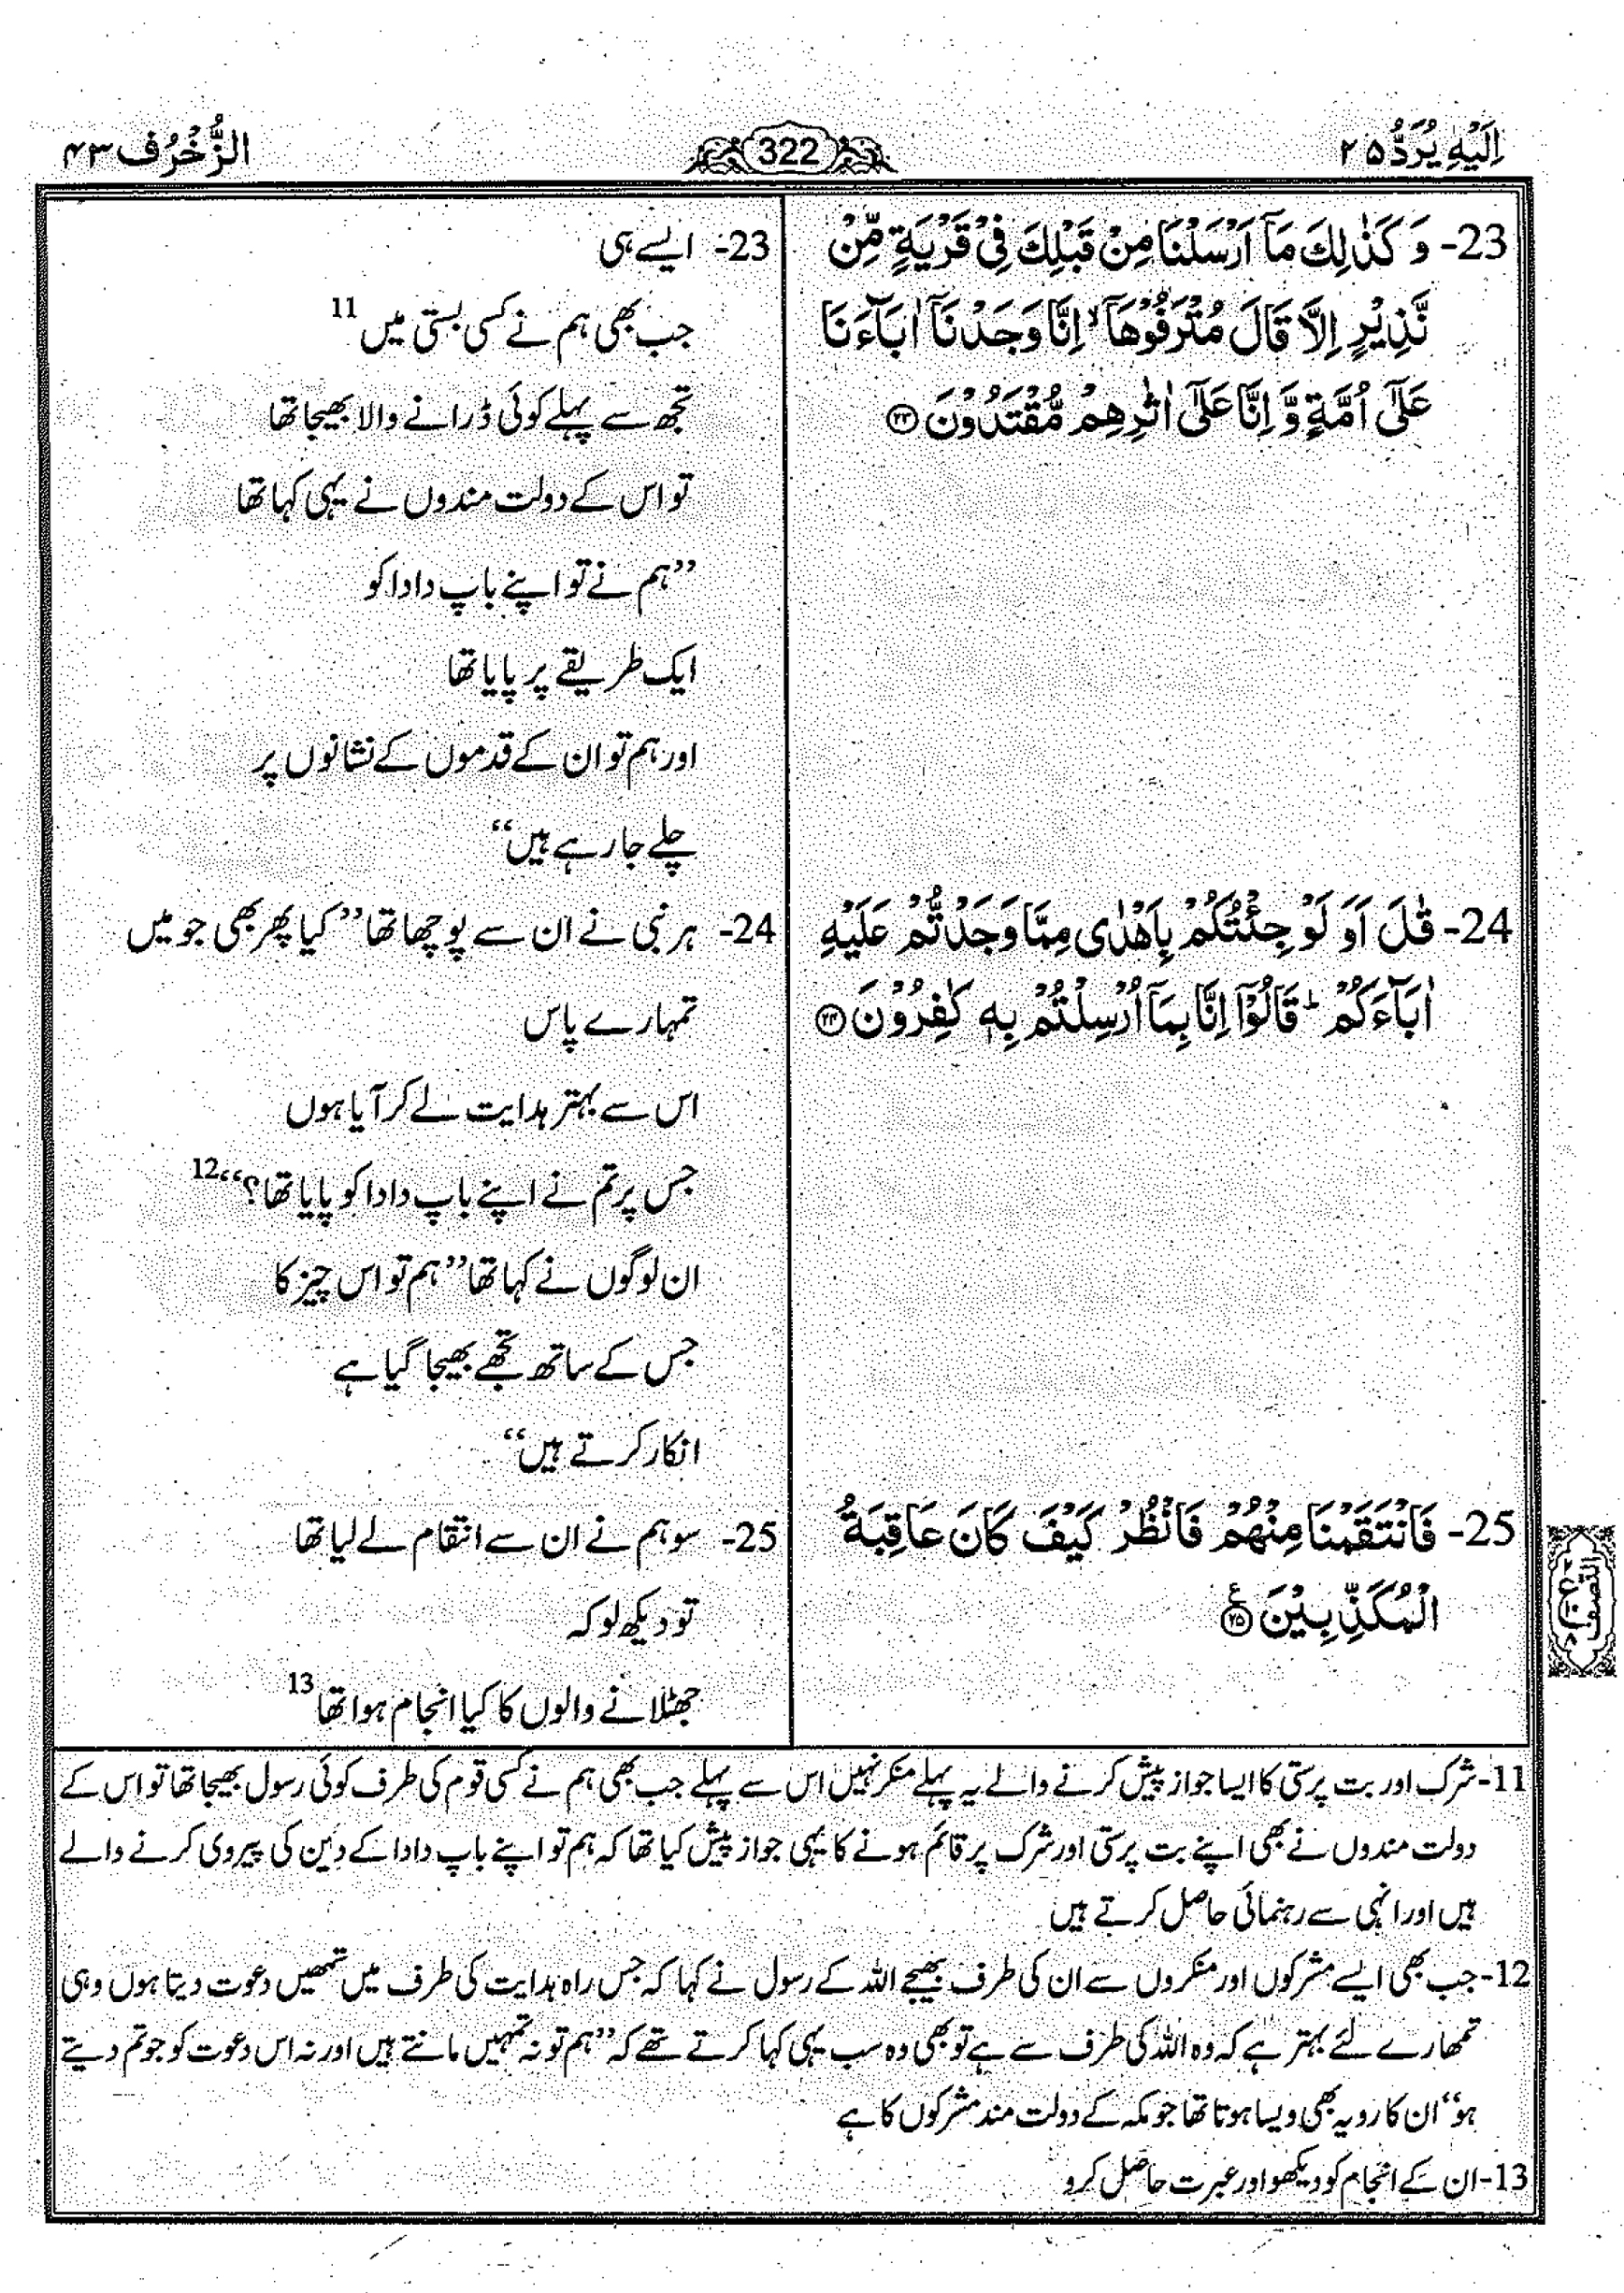 اِلَيْهِ يُرَدُّ ۲۵
322
الزُّخْرُف ۴۳
23- وَ كَذٰلِكَ مَاۤ اَرْسَلْنَا مِنْ قَبْلِكَ فِیْ قَرْیَةٍ مِّنْ
نَّذِیْرٍ اِلَّا قَالَ مُتْرَفُوْهَاۤ ۙ اِنَّا وَجَدْنَاۤ اٰبَآءَنَا
عَلٰۤی اُمَّةٍ وَّ اِنَّا عَلٰۤی اٰثٰرِهِمْ مُّقْتَدُوْنَ ۲۳
24- قٰلَ اَوَ لَوْ جِئْتُكُمْ بِاَهْدٰی مِمَّا وَجَدْتُّمْ عَلَیْهِ
اٰبَآءَكُمْ ؕ قَالُوْۤا اِنَّا بِمَاۤ اُرْسِلْتُمْ بِهٖ كٰفِرُوْنَ ۲۴
25- فَانْتَقَمْنَا مِنْهُمْ فَانْظُرْ كَیْفَ كَانَ عَاقِبَةُ
الْمُكَذِّبِیْنَ ۲۵ ع
23- ایسے ہی
جب بھی ہم نے کسی بستی میں 11
تجھ سے پہلے کوئی ڈرانے والا بھیجا تھا
تو اس کے دولت مندوں نے یہی کہا تھا
”ہم نے تو اپنے باپ دادا کو
ایک طریقے پر پایا تھا
اور ہم تو ان کے قدموں کے نشانوں پر
چلے جا رہے ہیں“
24- ہر نبی نے ان سے پوچھا تھا ”کیا پھر بھی جو میں
تمہارے پاس
اس سے بہتر ہدایت لے کر آیا ہوں
جس پر تم نے اپنے باپ دادا کو پایا تھا؟“ 12
ان لوگوں نے کہا تھا ”ہم تو اس چیز کا
جس کے ساتھ تجھے بھیجا گیا ہے
انکار کرتے ہیں“
25- سو ہم نے ان سے انتقام لے لیا تھا
تو دیکھ لو کہ
جھٹلانے والوں کا کیا انجام ہوا تھا 13
النصف
11- شرک اور بت پرستی کا ایسا جواز پیش کرنے والے یہ پہلے منکر نہیں اس سے پہلے جب بھی ہم نے کسی قوم کی طرف کوئی رسول بھیجا تھا تو اس کے
دولت مندوں نے بھی اپنے بت پرستی اور شرک پر قائم ہونے کا یہی جواز پیش کیا تھا کہ ہم تو اپنے باپ دادا کے دین کی پیروی کرنے والے
ہیں اور انہی سے رہنمائی حاصل کرتے ہیں
12- جب بھی ایسے مشرکوں اور منکروں سے ان کی طرف بھیجے اللہ کے رسول نے کہا کہ جس راہ ہدایت کی طرف میں تمھیں دعوت دیتا ہوں وہی
تمھارے لئے بہتر ہے کہ وہ اللہ کی طرف سے ہے تو بھی وہ سب یہی کہا کرتے تھے کہ ”ہم تو نہ تمہیں مانتے ہیں اور نہ اس دعوت کو جو تم دیتے
ہو“ ان کا رویہ بھی ویسا ہوتا تھا جو مکہ کے دولت مند مشرکوں کا ہے
13- ان کے انجام کو دیکھو اور عبرت حاصل کرو